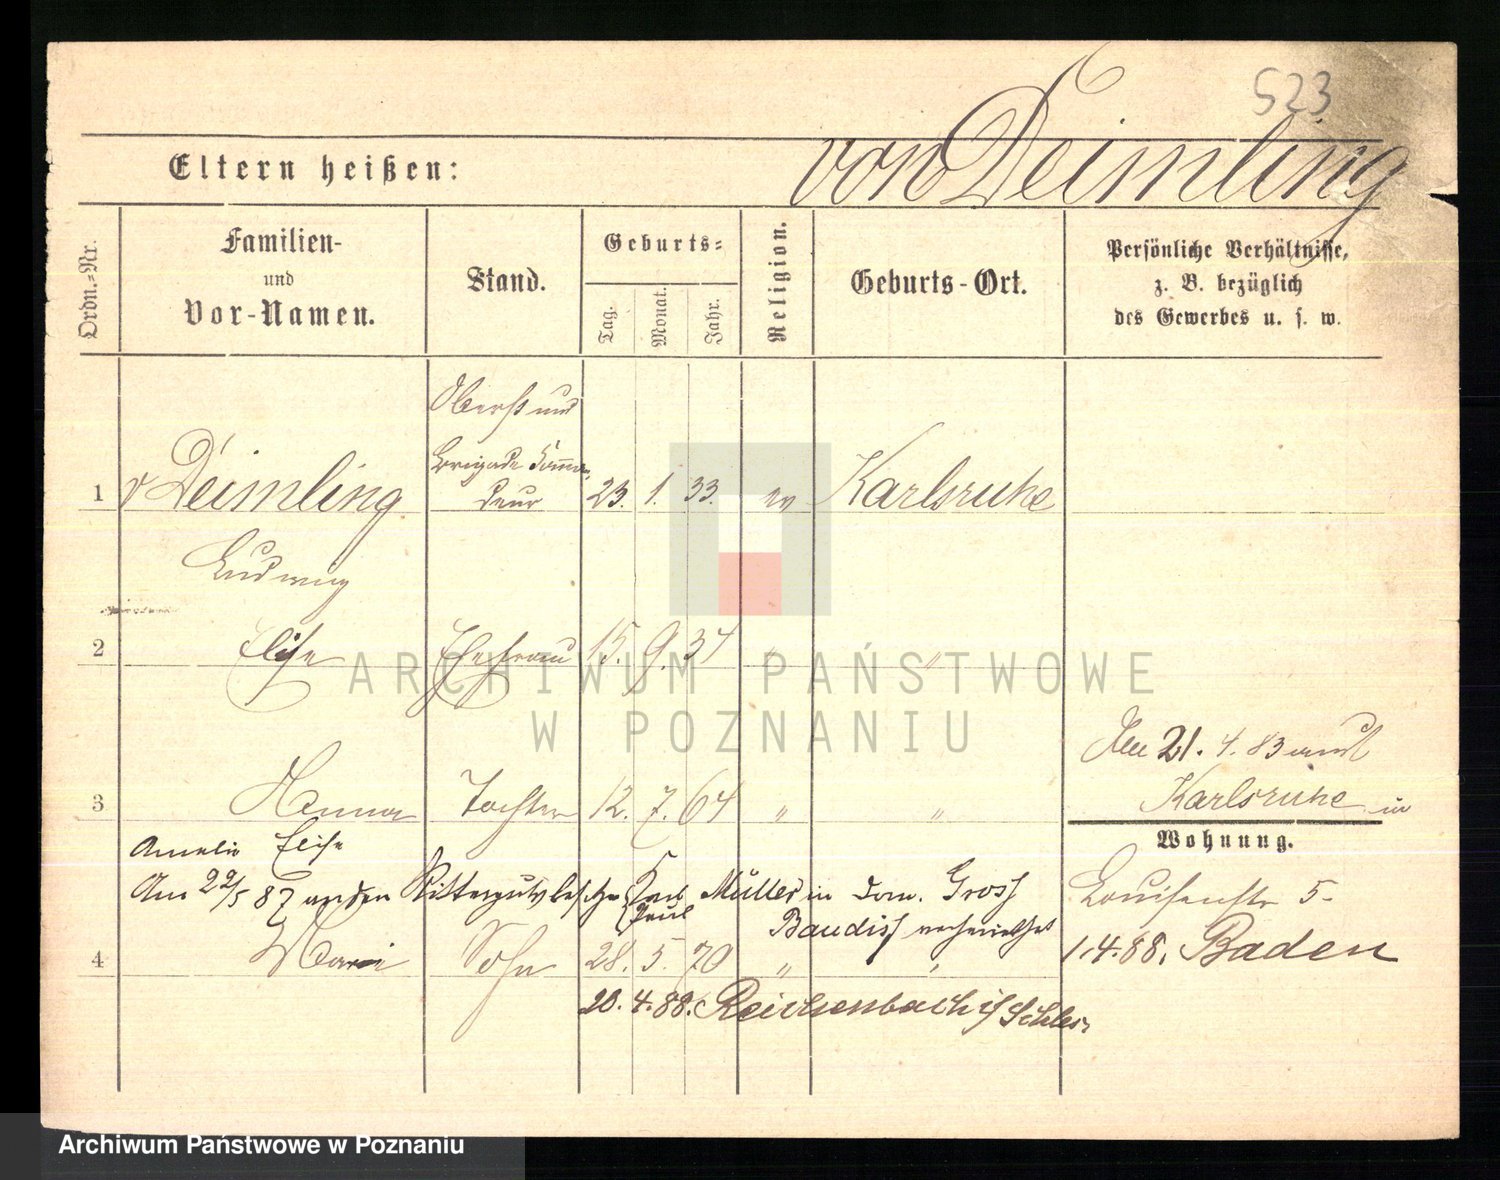 523
Eltern heißen:
von Deimling
Ordn.-Nr.
Familien-
und
Vor-Namen.
Stand.
Geburts-
Tag.
Monat.
Jahr.
Religion.
Geburts-Ort.
Persönliche Verhältnisse,
z. B. bezüglich
des Gewerbes u. s. w.
Oberst und
Brigade Komman-
deur
1 v Deimling 23. 1. 33. ev Karlsruhe
Ludwig
2 Elise Ehefrau 15. 9. 37 " "
ARCHIWUM PAŃSTWOWE
W POZNANIU
Den 21. 4. 83 aus
Karlsruhe
3 Hanna Tochter 12. 7. 64 " "
Wohnung.
Amalie Elise
Am 22/5 87 an den Rittergutsbesitzer Karl Müller in Dom. Gross
Paul
Baudiss verheirathet
Louisenstr 5-
4 Sohn 28. 5. 70 " "
1.4.88. Baden
20. 4. 88. Reichenbach i/ Schles.
Archiwum Państwowe w Poznaniu